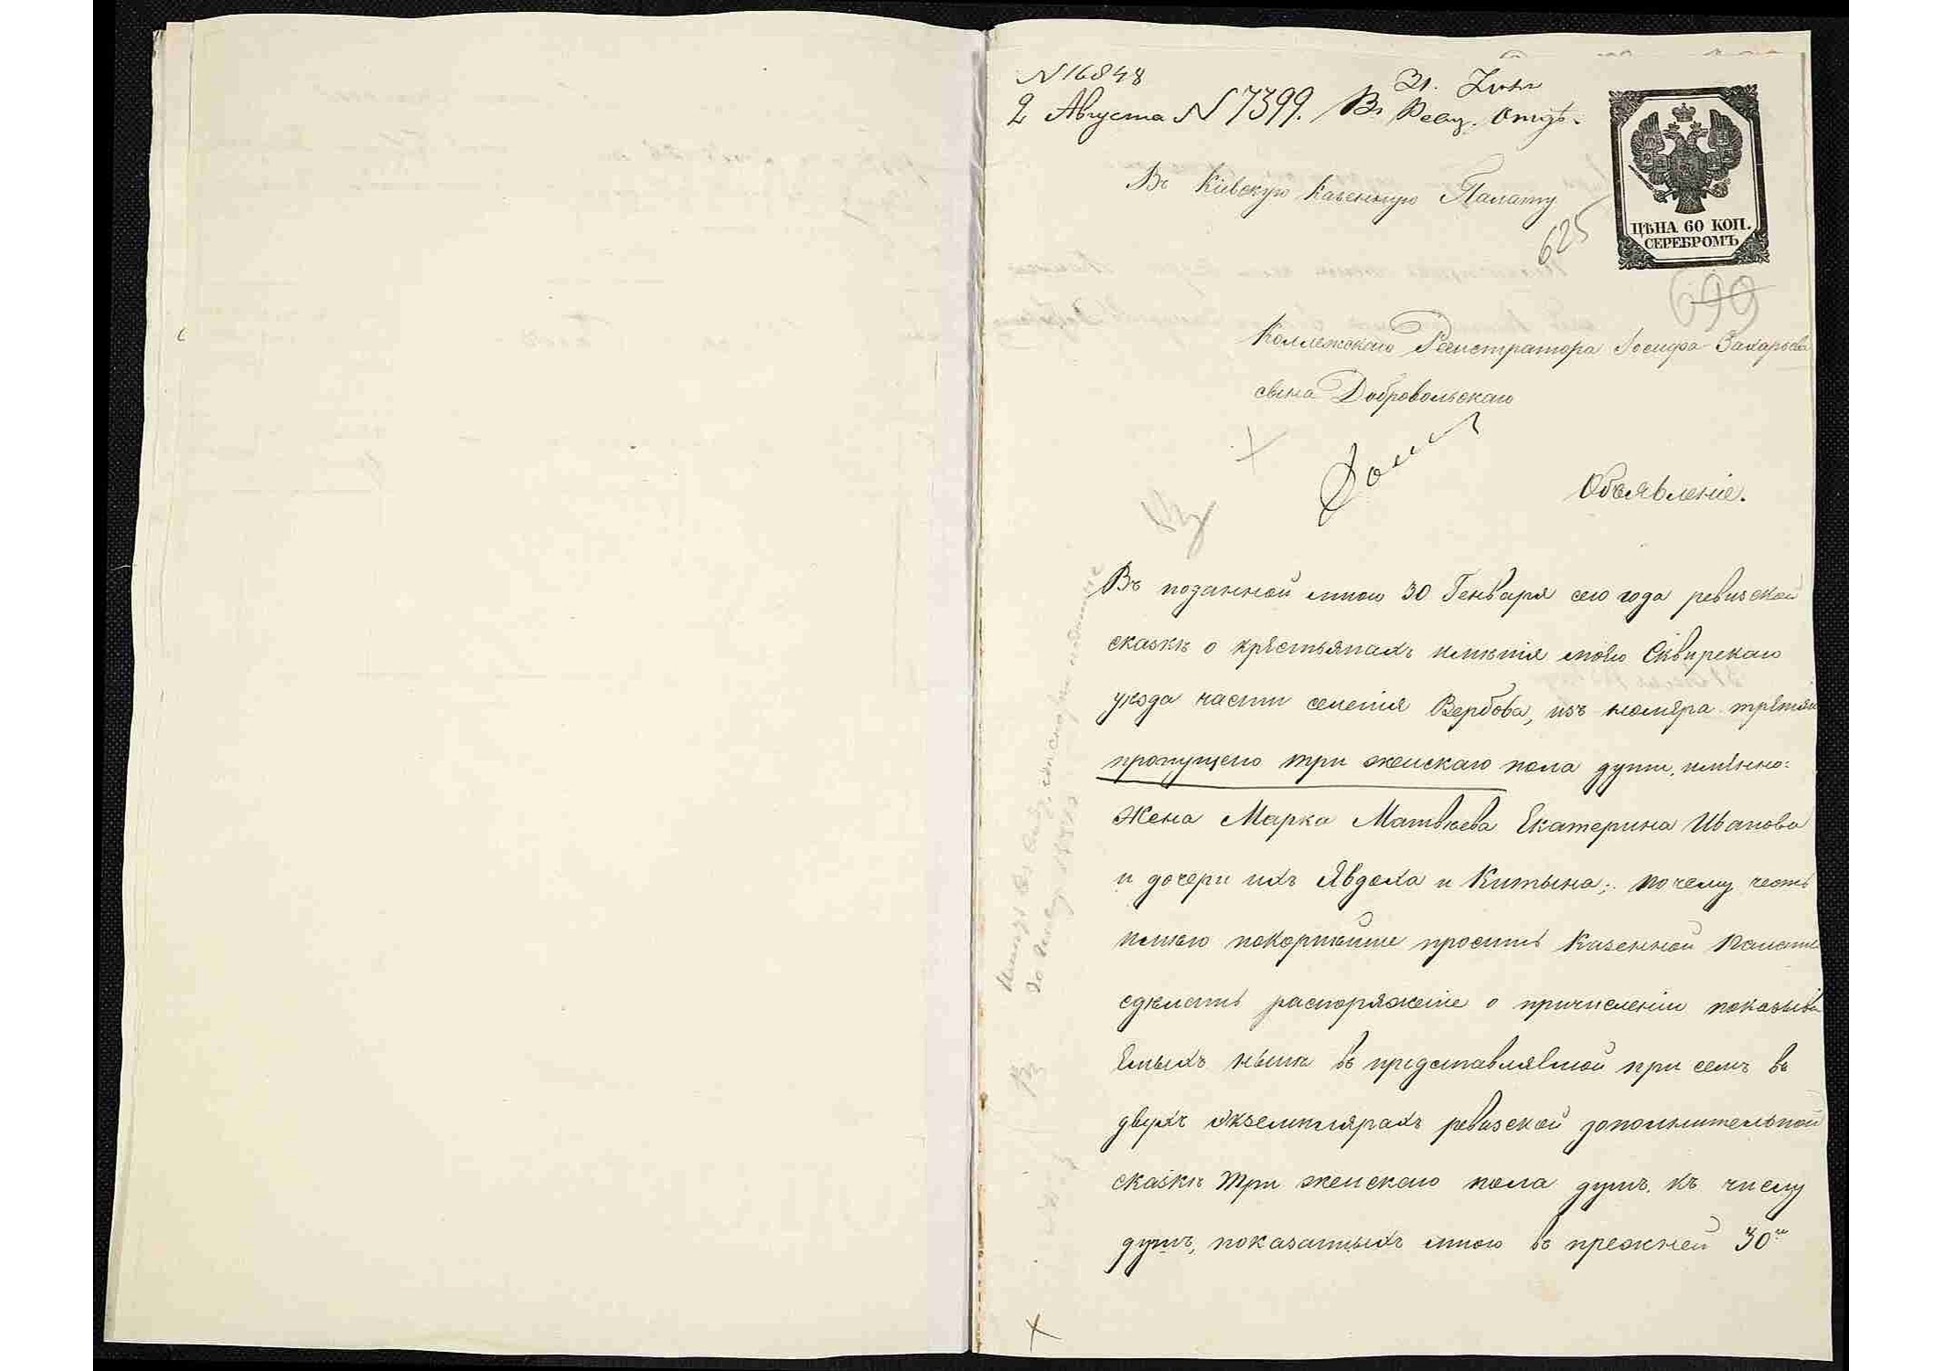 N 16848
31. Июля
2 Августа N 7399. Въ Ревиз. Отдѣ.
Въ Кіевскую Казенную Палату
ЦѢНА 60 КОП.
СЕРЕБРОМЪ
625
699
Коллежскаго Регистратора Іосифа Захарьева
сына Добровольскаго
Объявленіе.
Въ поданной мною 30 Генваря сего года ревизской
сказкѣ о крестьянахъ имѣнія моего Сквирскаго
уѣзда части селенія Вербова, изъ номера третяго
пропущено три женскаго пола души, именно:
Жена Марка Матвѣева Екатерина Иванова
и дочери ихъ Явдоха и Китьяна; почему честь
имѣю покорнѣйше просить Казенной Палаты
сдѣлать распоряженіе о причисленіи показыва
емыхъ нынѣ въ представляемой при семъ въ
двухъ экземплярахъ ревизской дополнительной
сказкѣ три женскаго пола душъ къ числу
душъ, показанныхъ мною въ прежней 30